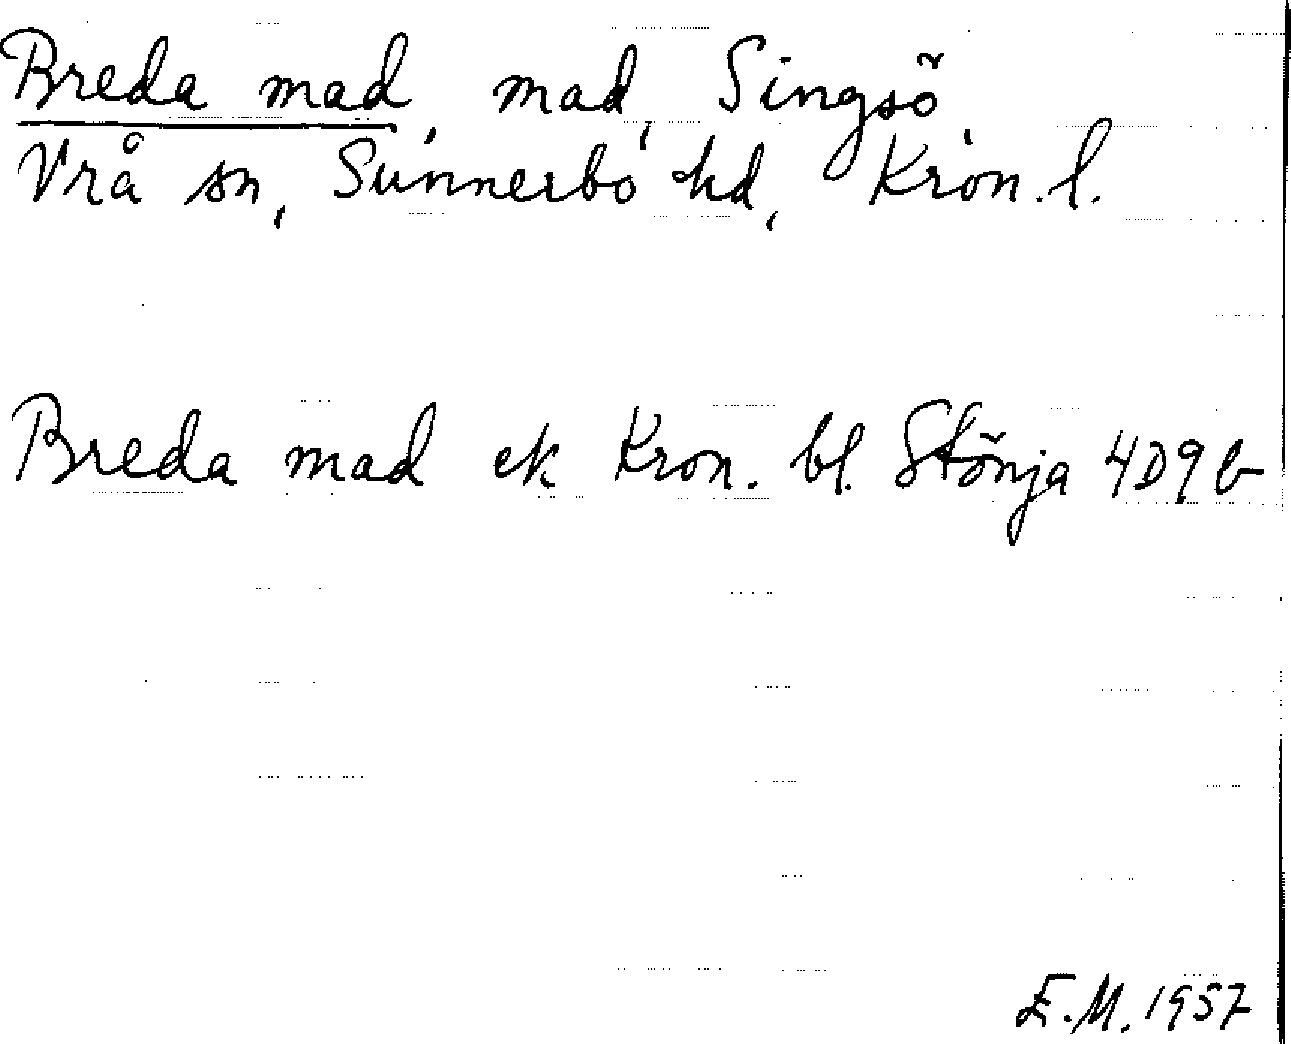 Breda mad, mad, Singsö,
Vrå sn, Sunnerbo hd, Kron. l.
Breda mad ek Kron. bl. Stönja 4D9b
E.M. 1957